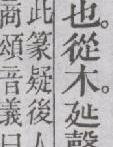 也。從木。延聲
此篆疑後人
商頌音義曰